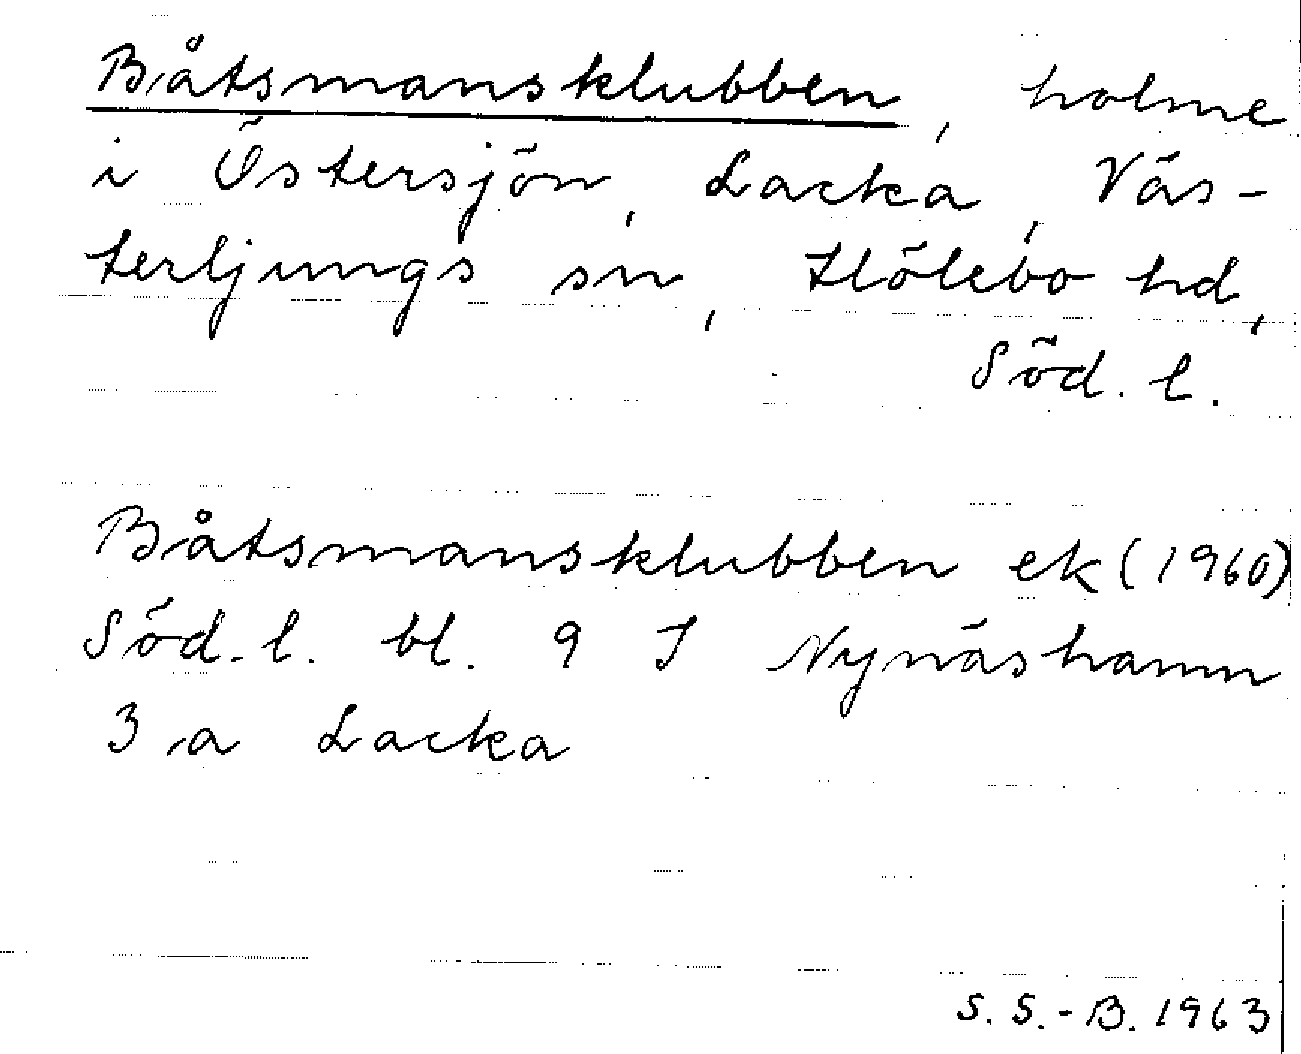 Båtsmansklubben, holme
i Östersjön, Lacka, Väs-
terljungs sn, Hölebo hd,
Söd. l.
Båtsmansklubben ek (1960)
Söd. l. bl. 9 I Nynäshamn
3 a Lacka
S. S.-B. 1963